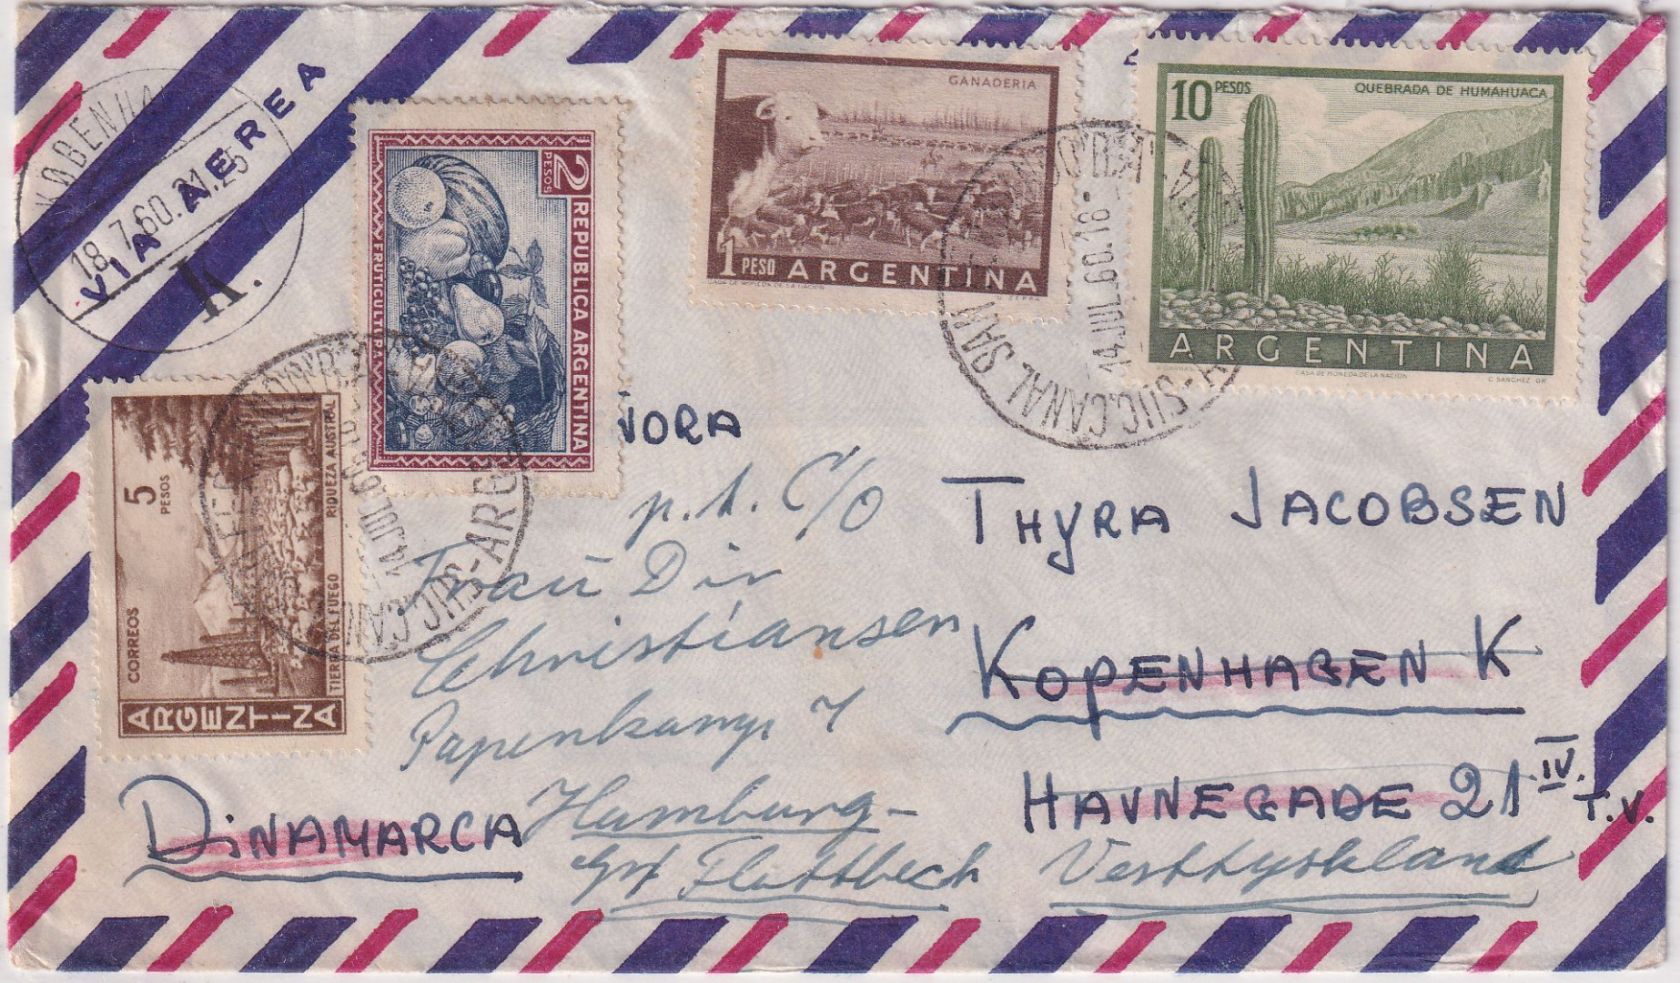 VIA AEREA
KØBENHA
18.7.60.21.25
K.
2 PESOS
REPUBLICA ARGENTINA
FRUTICULTURA
GANADERIA
1 PESO ARGENTINA
10 PESOS
QUEBRADA DE HUMAHUACA
ARGENTINA
CASA DE MONEDA DE LA NACION
14.JUL.60.18-
SUC.CANAL SAN
5 PESOS
CORREOS
RIQUEZA AUSTRAL
TIERRA DEL FUEGO
ARGENTINA
14.JUL.60
SUC.CANAL
ARG
ÑORA
THYRA JACOBSEN
KOPENHAGEN K
HAVNEGADE 21 IV. T.V.
DINAMARCA
p.t. C/O
Frau Dir
Christiansen
Papenkamp 7
Hamburg-
Flottbeck
Vesttyskland